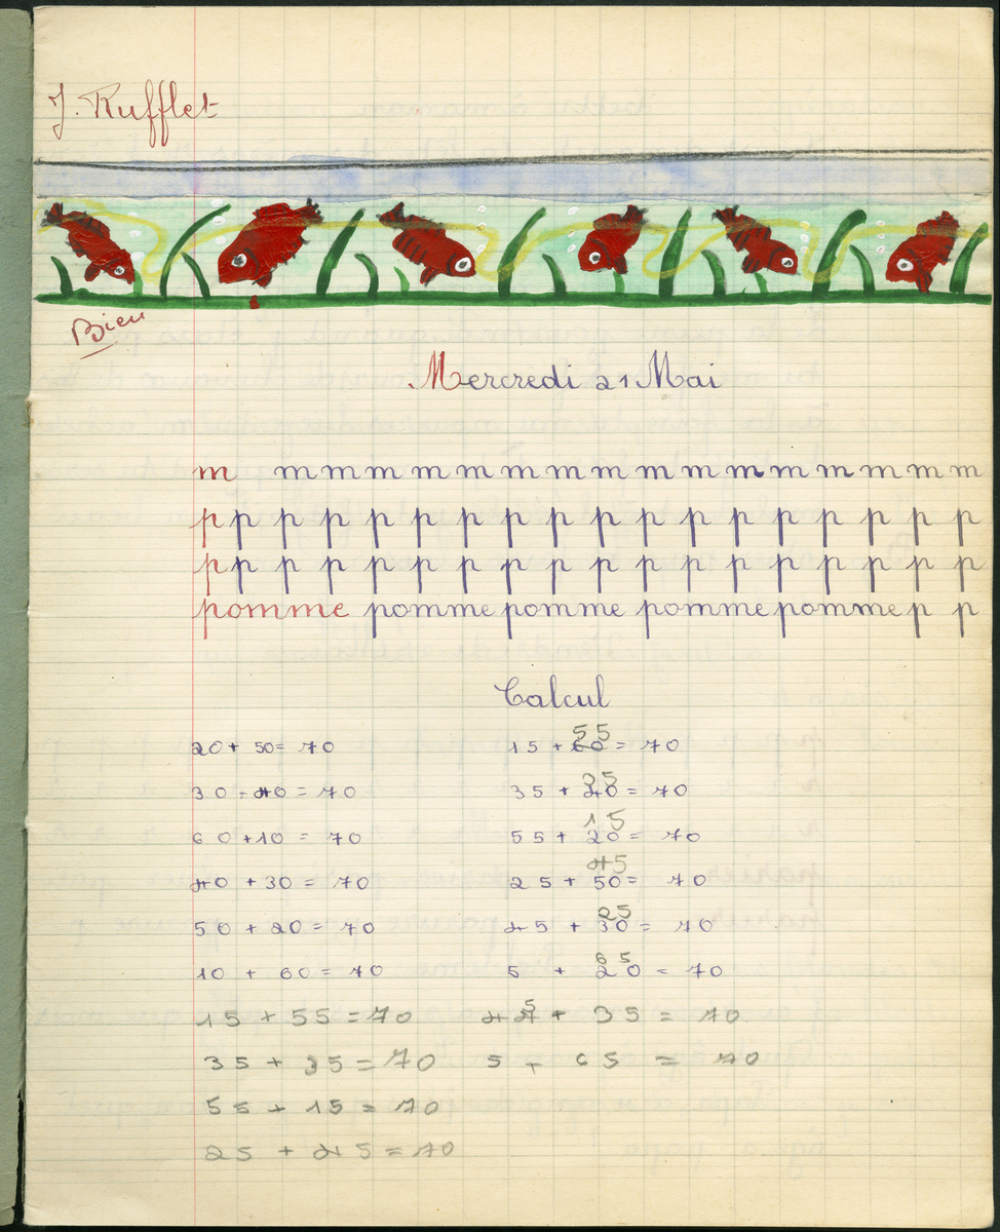 J. Rufflet
Bien
Mercredi 21 Mai
m m m m m m m m m m m m m m m m m
p p p p p p p p p p p p p p p p p p
p p p p p p p p p p p p p p p p p p
pomme pomme pomme pomme pomme p p
Calcul
20 + 50 = 70
30 + 40 = 70
60 + 10 = 70
40 + 30 = 70
50 + 20 = 70
10 + 60 = 70
15 + 55 = 70
35 + 35 = 70
55 + 15 = 70
25 + 45 = 70
55
15 + 60 = 70
35
35 + 40 = 70
15
55 + 20 = 70
45
25 + 50 = 70
25
45 + 30 = 70
65
5 + 20 = 70
45 + 35 = 70
5 + 65 = 70